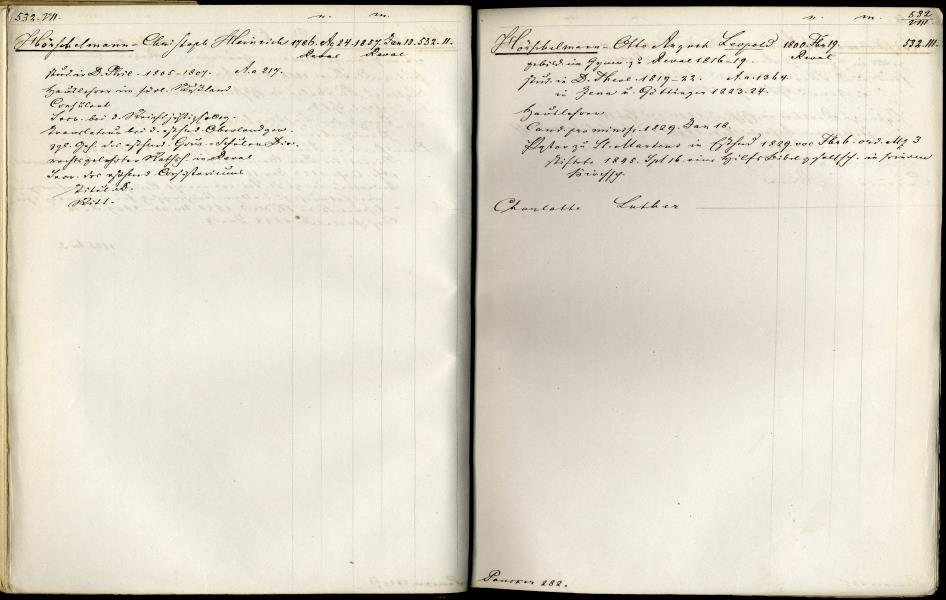 532.VII. n. m.
Hörschelmann - Christoph Heinrich 1786. Ag 24. 1857. Jan 10. 532. II.
Reval Reval
stud. in D. Phil. 1805-1807. A.a 217.
Hauslehrer im südl. Rußland
Consulent
Secr. bei d.
Translateur bei d. estländ. Oberlandger.
des estländ. Gouv. Schulen Dir.
rechtsgelehrter Rathsh. in Reval
Secr. des estländ. Consistoriums
TitulR.
Ritt.
n. m. 532
VIII.
Hörschelmann - Otto August Leopold 1800. Fbr 19. 532. III.
Reval
gebild. im Gymn. zu Reval 1816-19.
stud. in D. Theol. 1819-22. A.a 1364.
in Jena u. Göttingen 1823. 24.
Hauslehrer
Cand. pro minist. 1829. Jan 18.
Pastor zu St. Martens in Estland 1829. ord. Mz 3
stiftete 1845. Spt 16. eine Hilfsbibelgesellsch. in seinem
Kirchsp.
Charlotte Luther
Paucker 282.